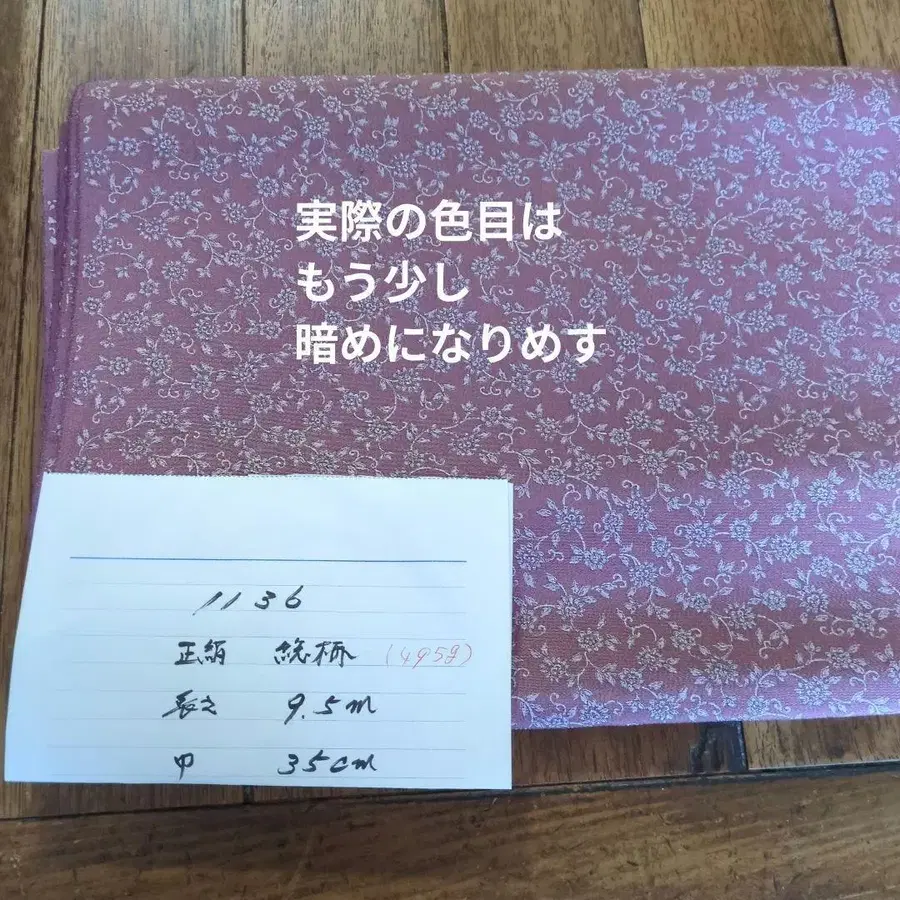 実際の色目は
もう少し
暗めになりめす
1136
正絹 総柄 (495g)
長さ 9.5m
巾 35cm